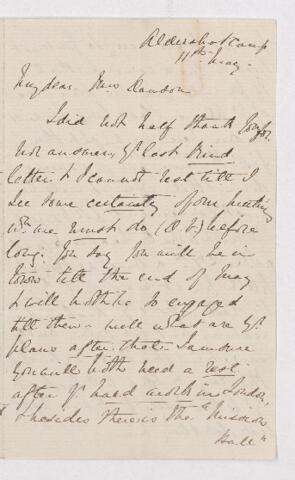 Aldershot Camp
11th May.
My dear Mrs Dawson
I did not half thank you for
not answerg yr last kind
letter & I cannot rest till I
see some certainty of our meeting
wh. we must do (D.V.) before
long. You say you will be in
town till the end of May
& will both be so engaged
till then - well what are yr
plans after that. I am sure
you will both need a rest
after yr hard work in London,
& besides there is the "Mission
Hall"